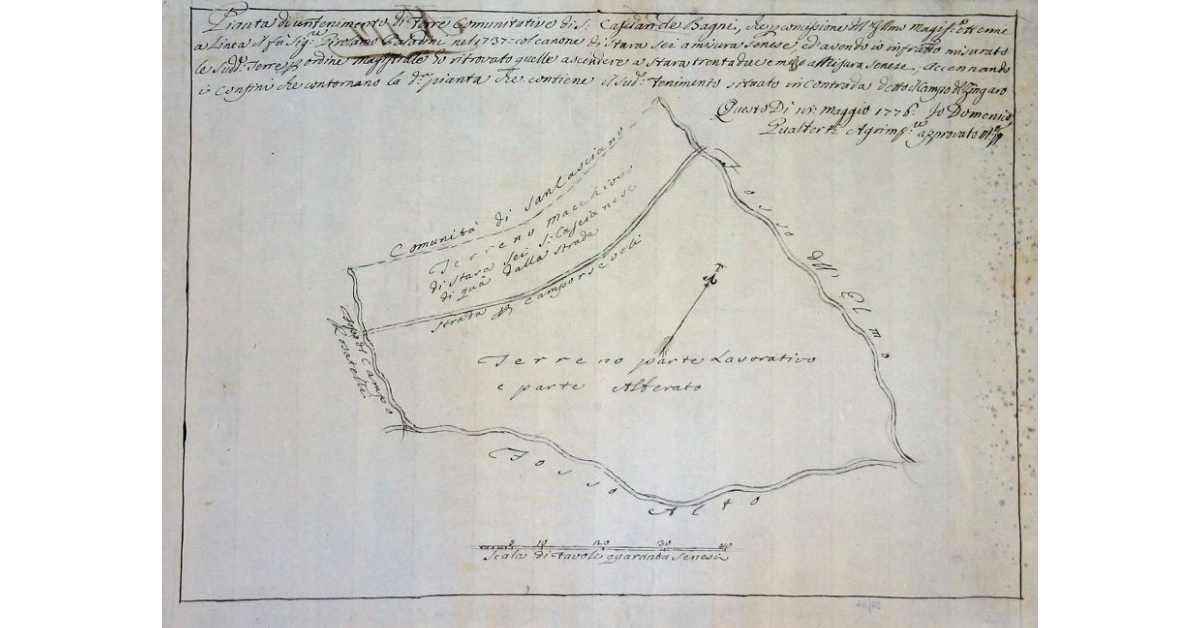 Pianta di un tenimento di Terre Comunitative di S. Cascian de Bagni, che per concessione dell' Illmo Magisto. ottenne
a Linea il fù Sigre. Girolamo nel 1737: col canone di stara sei a misura senese, ed avendo io infratto misurato
le Sudde. Terre p ordine magistrale ho ritrovato quelle ascendere a stara trentadue e misura senese, Accennando
i Confini che contornano la da. pianta che contiene il Sudo. Tenimento situato in Contrada detto il Campo del Zingaro
Questo Di maggio 1776. Io Domenico
Gualterii Agrimre. approvato
Comunità di San Casciano
Terreno macchivo
di stara sei S. Cascianese
di quà dalla strada
Strada di Camporsevoli
Fosso dell' Elmo
Fosso di Campo
Terreno parte Lavorativo
e parte Alberato
Fosso Alto
8 10 20 30 40
Scala di tavole quaranta Senesi